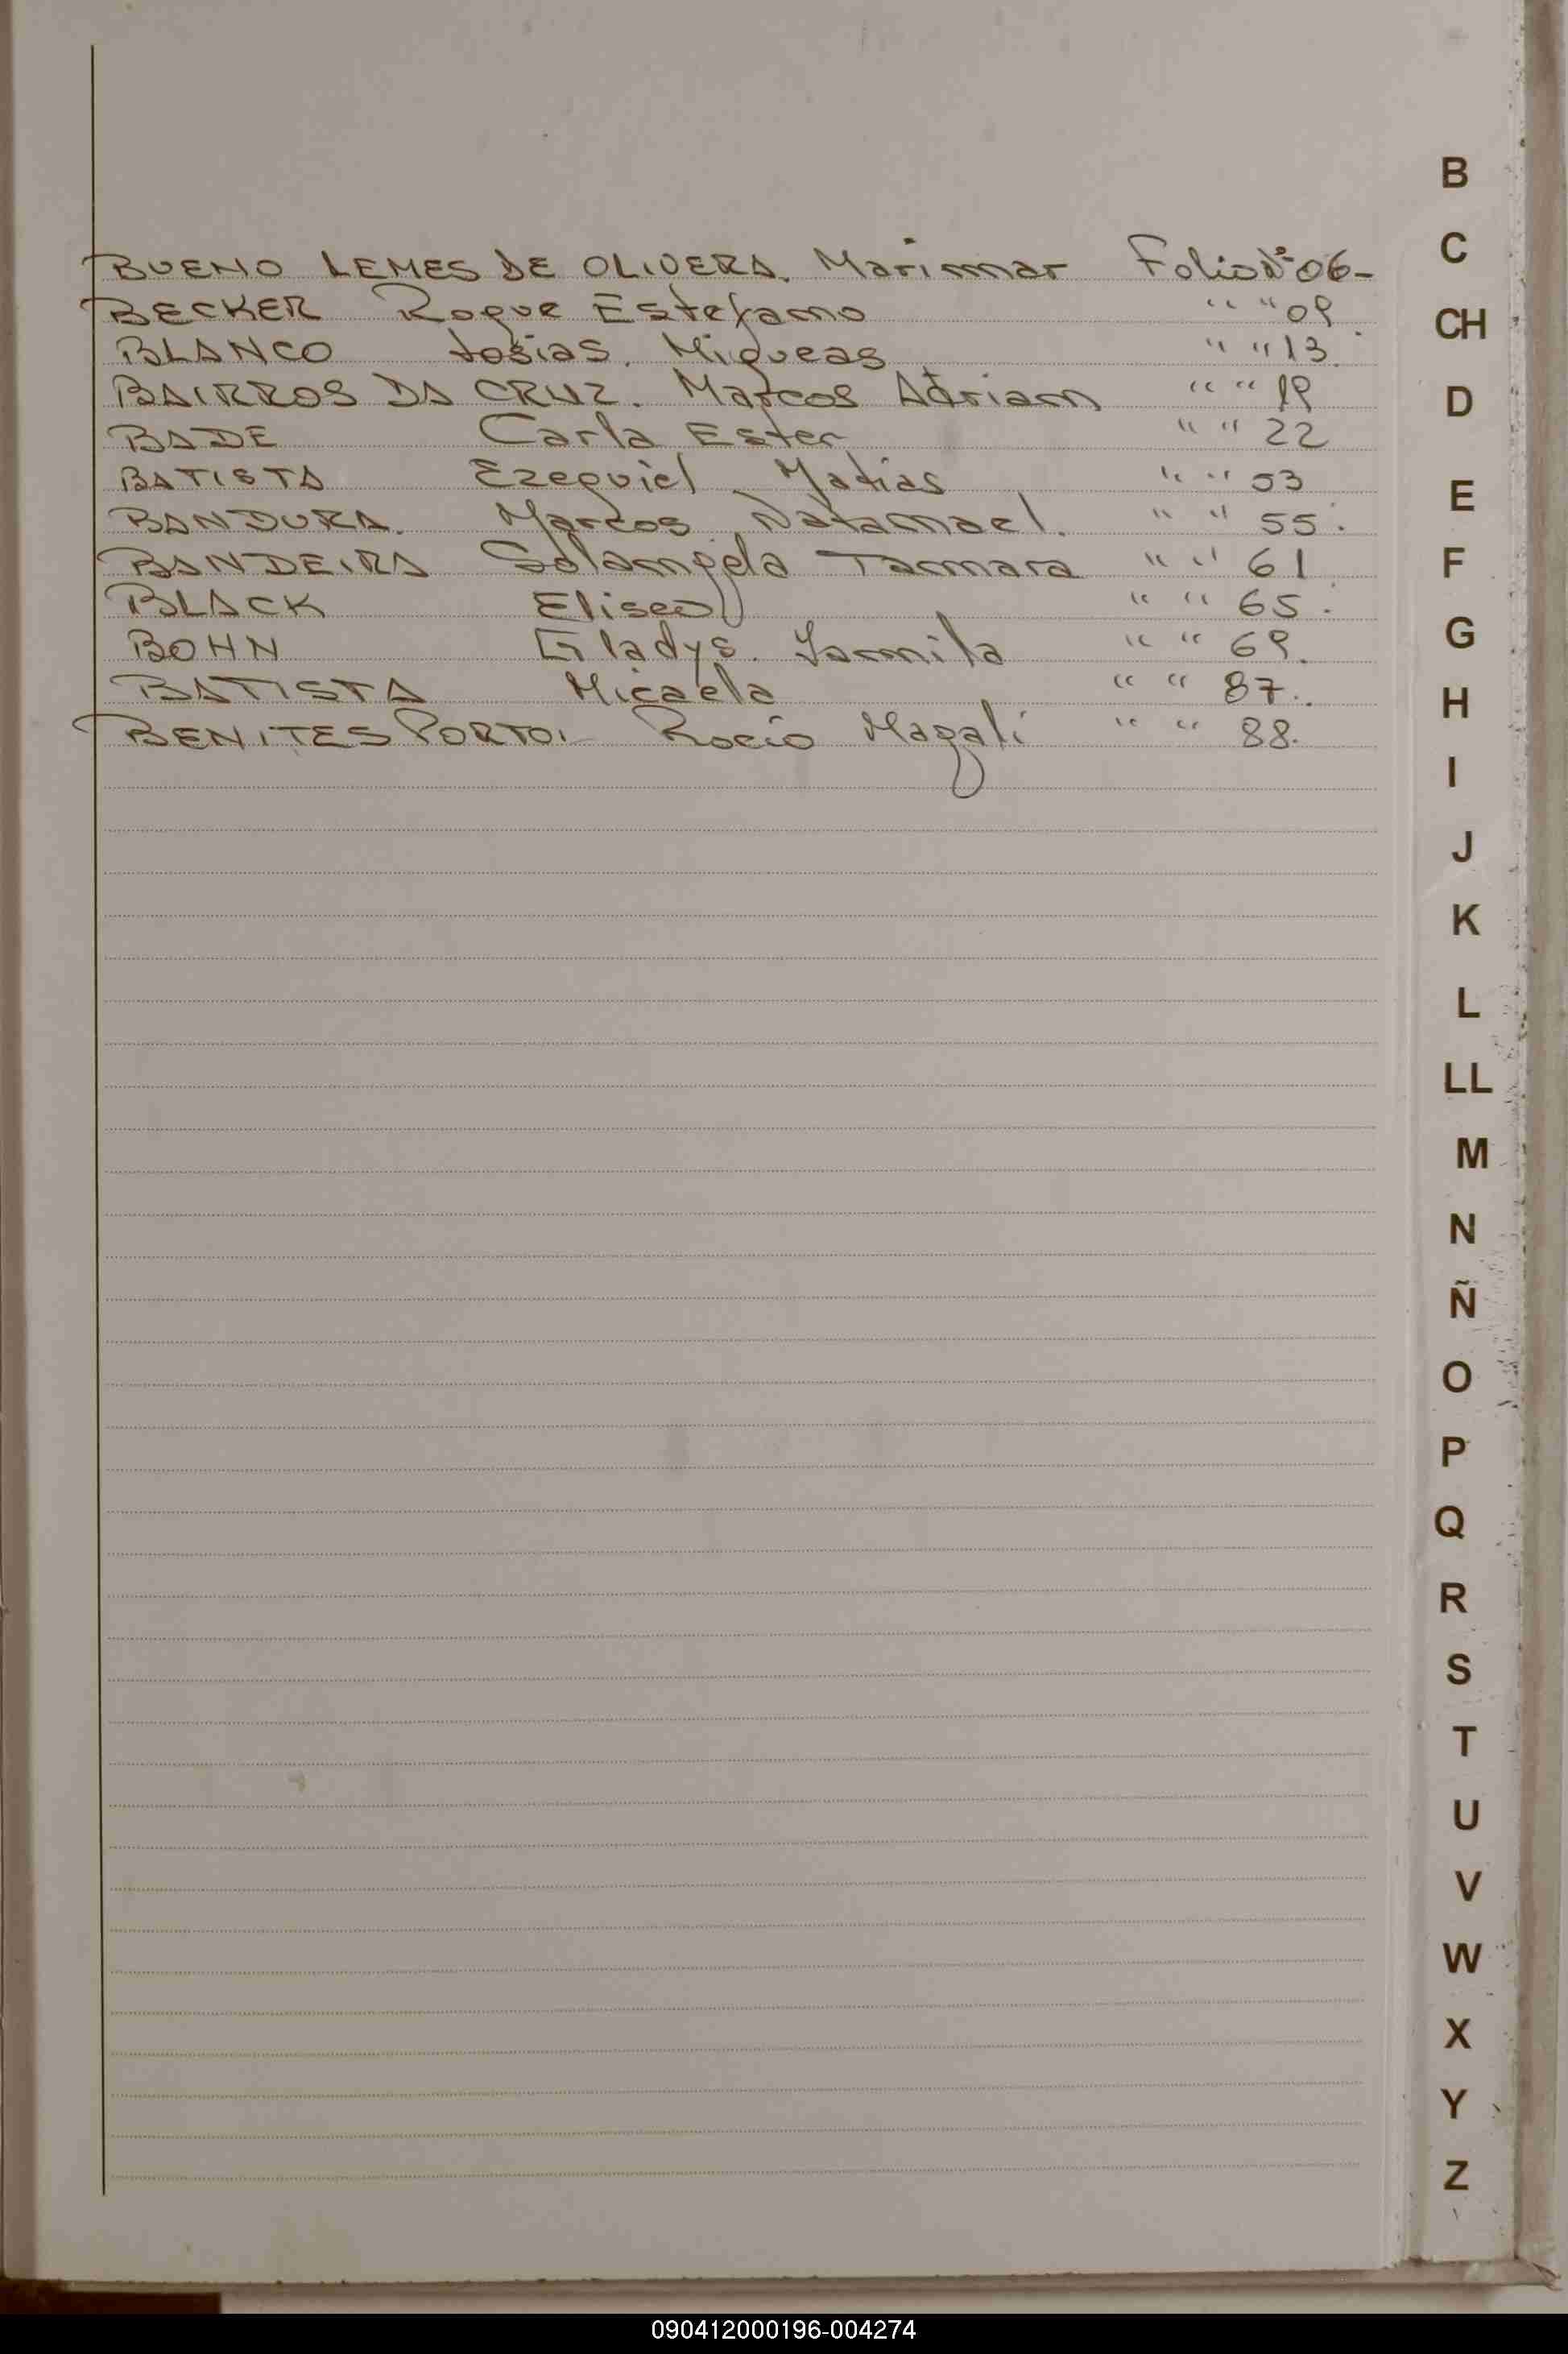 BUENO LEMES DE OLIVERA. Marimar Folio Nº 06-
BECKER Roque Estefano " " 09
BLANCO Josias. Miqueas " " 13.
BAIRROS DA CRUZ. Marcos Adrian " " 19
BADE Carla Ester " " 22
BATISTA Ezequiel Matias " " 53
BANDURA. Marcos Natanael. " " 55.
BANDEIRA Solangela Tamara " " 61
BLACK Eliseo " " 65.
BOHN Gladys. Yamila " " 69.
BATISTA Micaela " " 87.
BENITES PORTO. Rocio Magali " " 88.
B
C
CH
D
E
F
G
H
I
J
K
L
LL
M
N
Ñ
O
P
Q
R
S
T
U
V
W
X
Y
Z
090412000196-004274